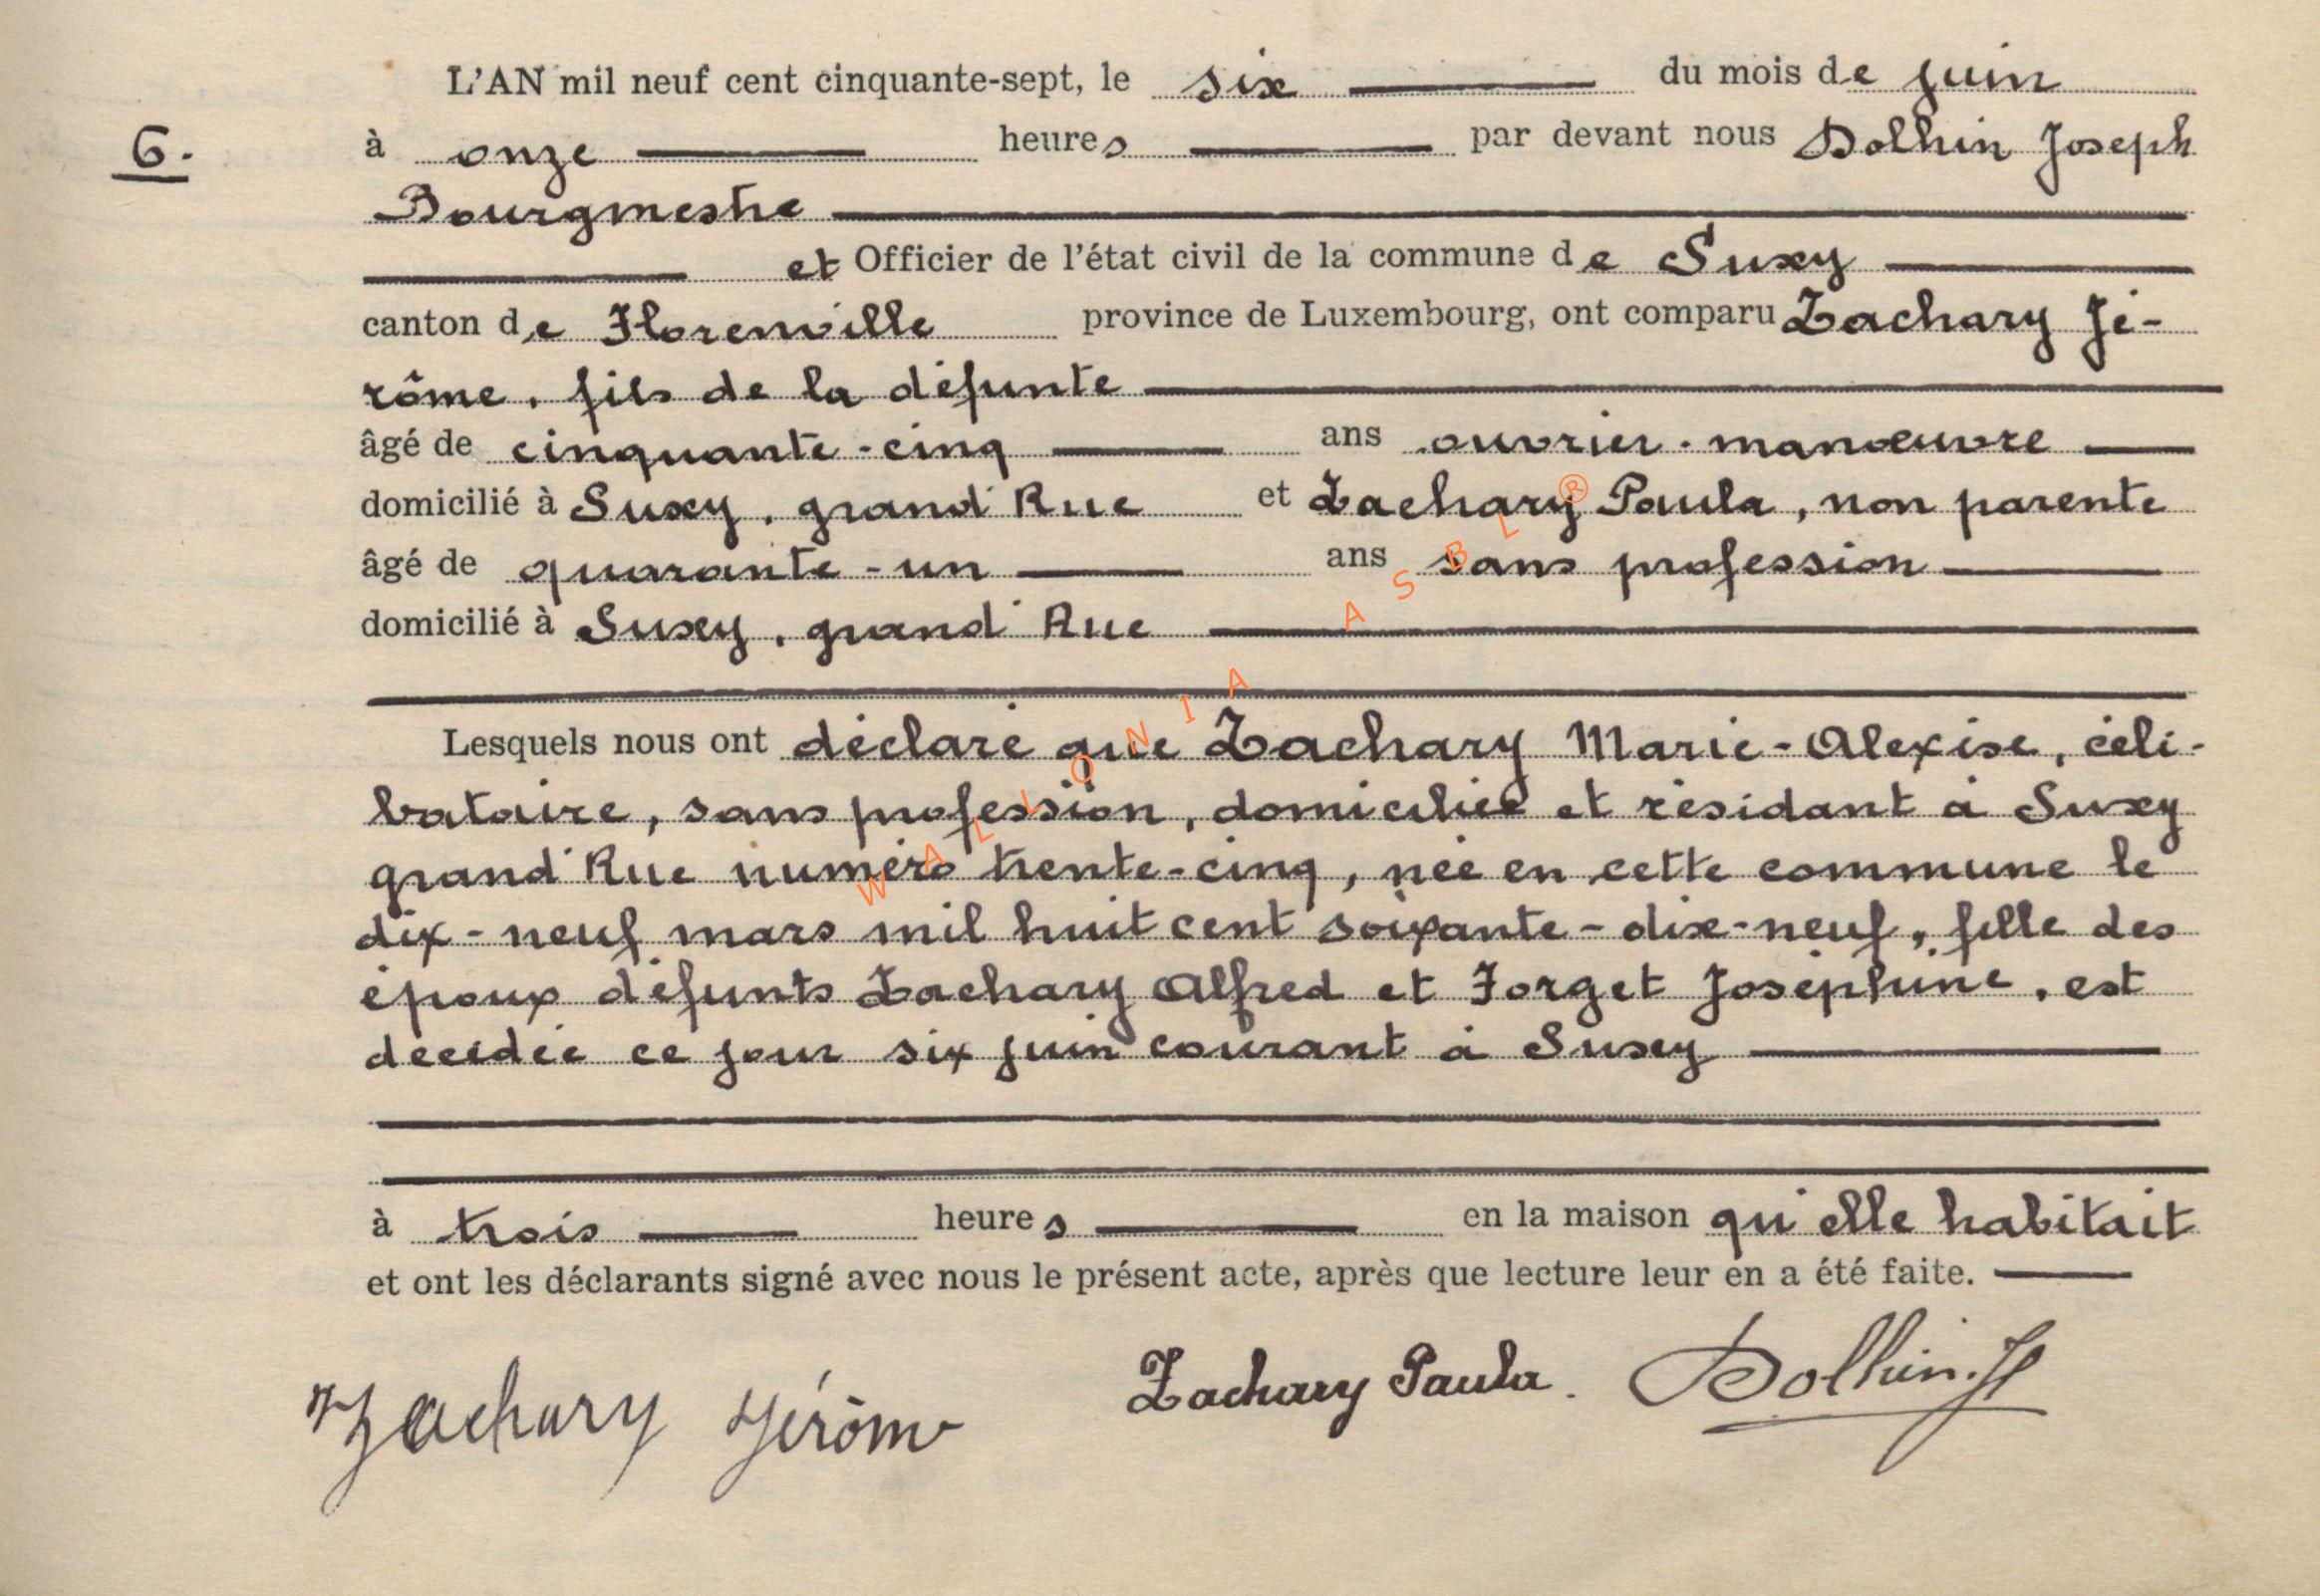 L'AN mil neuf cent cinquante-sept, le six du mois de juin
6.
à onze heures par devant nous Dolhin Joseph
Bourgmestre
et Officier de l'état civil de la commune de Suxy
canton de Florenville province de Luxembourg, ont comparu Zachary Jé-
rôme, fils de la défunte
âgé de cinquante-cinq ans ouvrier-manœuvre
domicilié à Suxy, grand'Rue et Zachary Paula, non parente
âgé de quarante-un ans sans profession
domicilié à Suxy, grand'Rue
Lesquels nous ont déclaré que Zachary Marie-Alexise, céli-
bataire, sans profession, domiciliée et résidant à Suxy
grand'Rue numéro trente-cinq, née en cette commune le
dix-neuf mars mil huit cent soixante-dix-neuf, fille des
époux défunts Zachary Alfred et Forget Joséphine, est
décédée ce jour six juin courant à Suxy
à trois heures en la maison qu'elle habitait
et ont les déclarants signé avec nous le présent acte, après que lecture leur en a été faite.
Zachary Jérôme Zachary Paula. Dolhin. J
WALLONIA ASBL ®